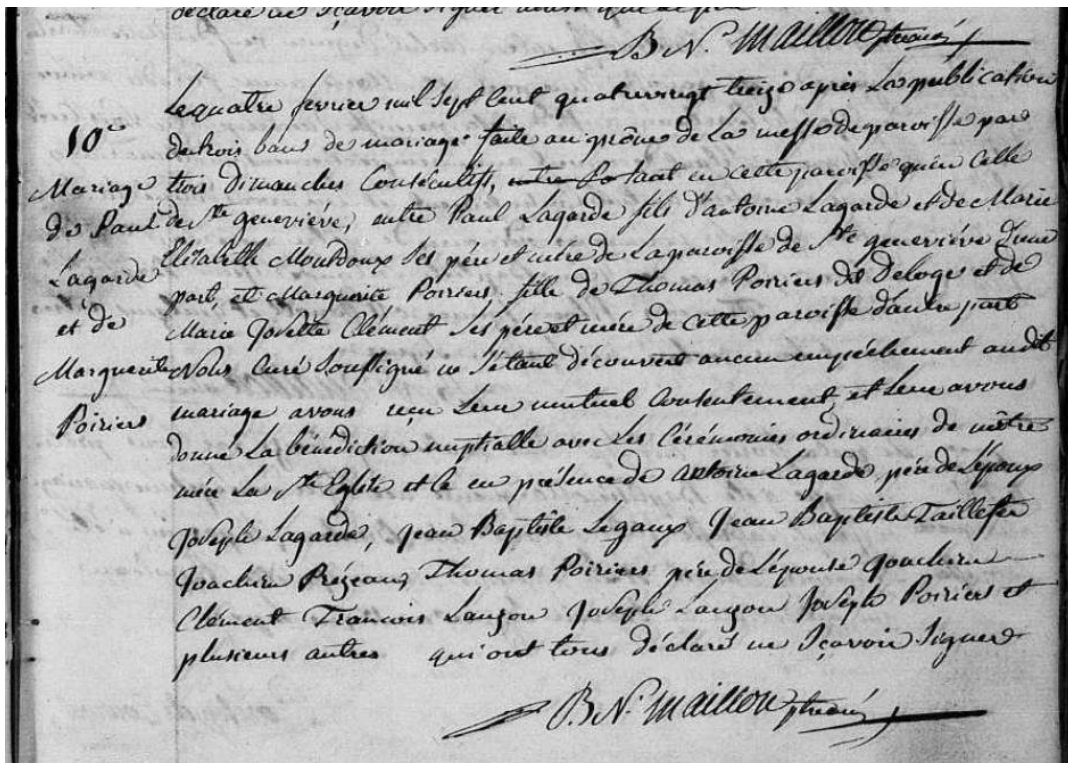 déclaré ne sçavoir signer
B N. Maillou ptre curé
Le quatre fevrier mil sept cent quatrevingt treize après La publication
10e
de trois bans de mariage faite au prône de La messe de paroisse par
Mariage
trois dimanches consécutifs, tant en cette paroisse qu'en celle
de Paul
de Ste geneviéve, entre Paul Lagarde fils d'antoine Lagarde et de Marie
Elizabeth Mouldoux ses pére et mére de La paroisse de Ste geneviéve d'une
Lagarde
part, et Marguerite Poiriers fille de Thomas Poiriers dit Deloge et de
et de
Marie Josette Clément ses pére et mére de cette paroisse d'autre part
Marguerite
Nous Curé soussigné ne s'étant découvert aucun empéchement audit
mariage avons reçu Leur mutuel consentement, et Leur avons
Poiriers
donné La bénédiction nuptialle avec Les Cérémonies ordinaires de nôtre
mére La Ste Eglise et ce en présence de antoine Lagarde pére de L'époux
Joseph Lagarde, Jean Baptiste Legaux Jean Baptiste Taillefer
Joachim Prézeau, Thomas Poiriers pére de L'épouse Joachim
Clément Francois Lauzon Joseph Lauzon Joseph Poiriers et
plusieurs autres qui ont tous déclaré ne sçavoir signer
B N. Maillou ptre curé